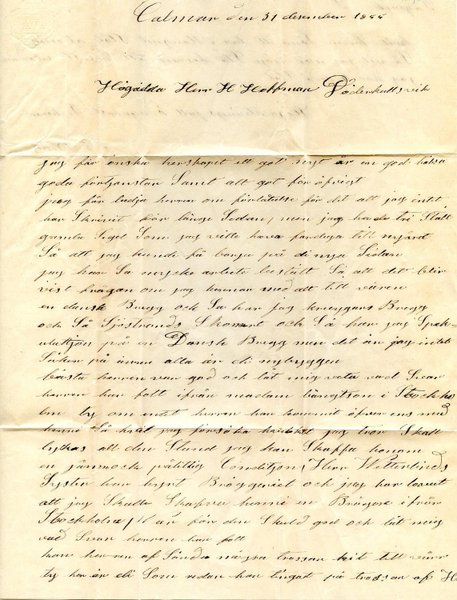 Calmar den 31 desember 1855
Högädla Herr H Hoffman Döderhultsvik
jag får önska herskapet ett got nytt år en god hälsa
goda förtjänstar Samt att got för öfrigt
jag får bedja herren om förlåtelse för det att jag intet
har Skrivit för länge Sedan, men jag hade två Stått
gamla Segel Som jag ville hava färdiga till nyåret
Så att jag kunde få börja på di nya Sedan
jag har Så mycke arbete bestält Så att det blir
vist frågan om jag hinner med det till våren
en dansk Brigg och Så har jag kreygars Brigg
och Så Sjöstrands Skonert och Så har jag Spek-
ulatjon på en Dansk Brigg men det är jag intet
Säker på ännu alla är di nybyggen
bästa herren var god och låt mig veta vad Svar
herren har fått ifrån madam bängtson i Stockho
lm ty om intet herren har kommit öfver ens med
henne Så Skall jag försöka jag tror Skall
lyckas att den Stund jag kan Skaffa honom
en jämnock pålitlig Conditjon, Herr
Syster har hyrt Bryggeriet och jag har lovat
att jag Skulle Skaffa henne en Bryggare ifrån
Stockholm, för den Skuld god och låt mig
vad Svar herren har fått
kan herren af Sända några trossar hit till
ty här är di Som redan har längat på trossar af H